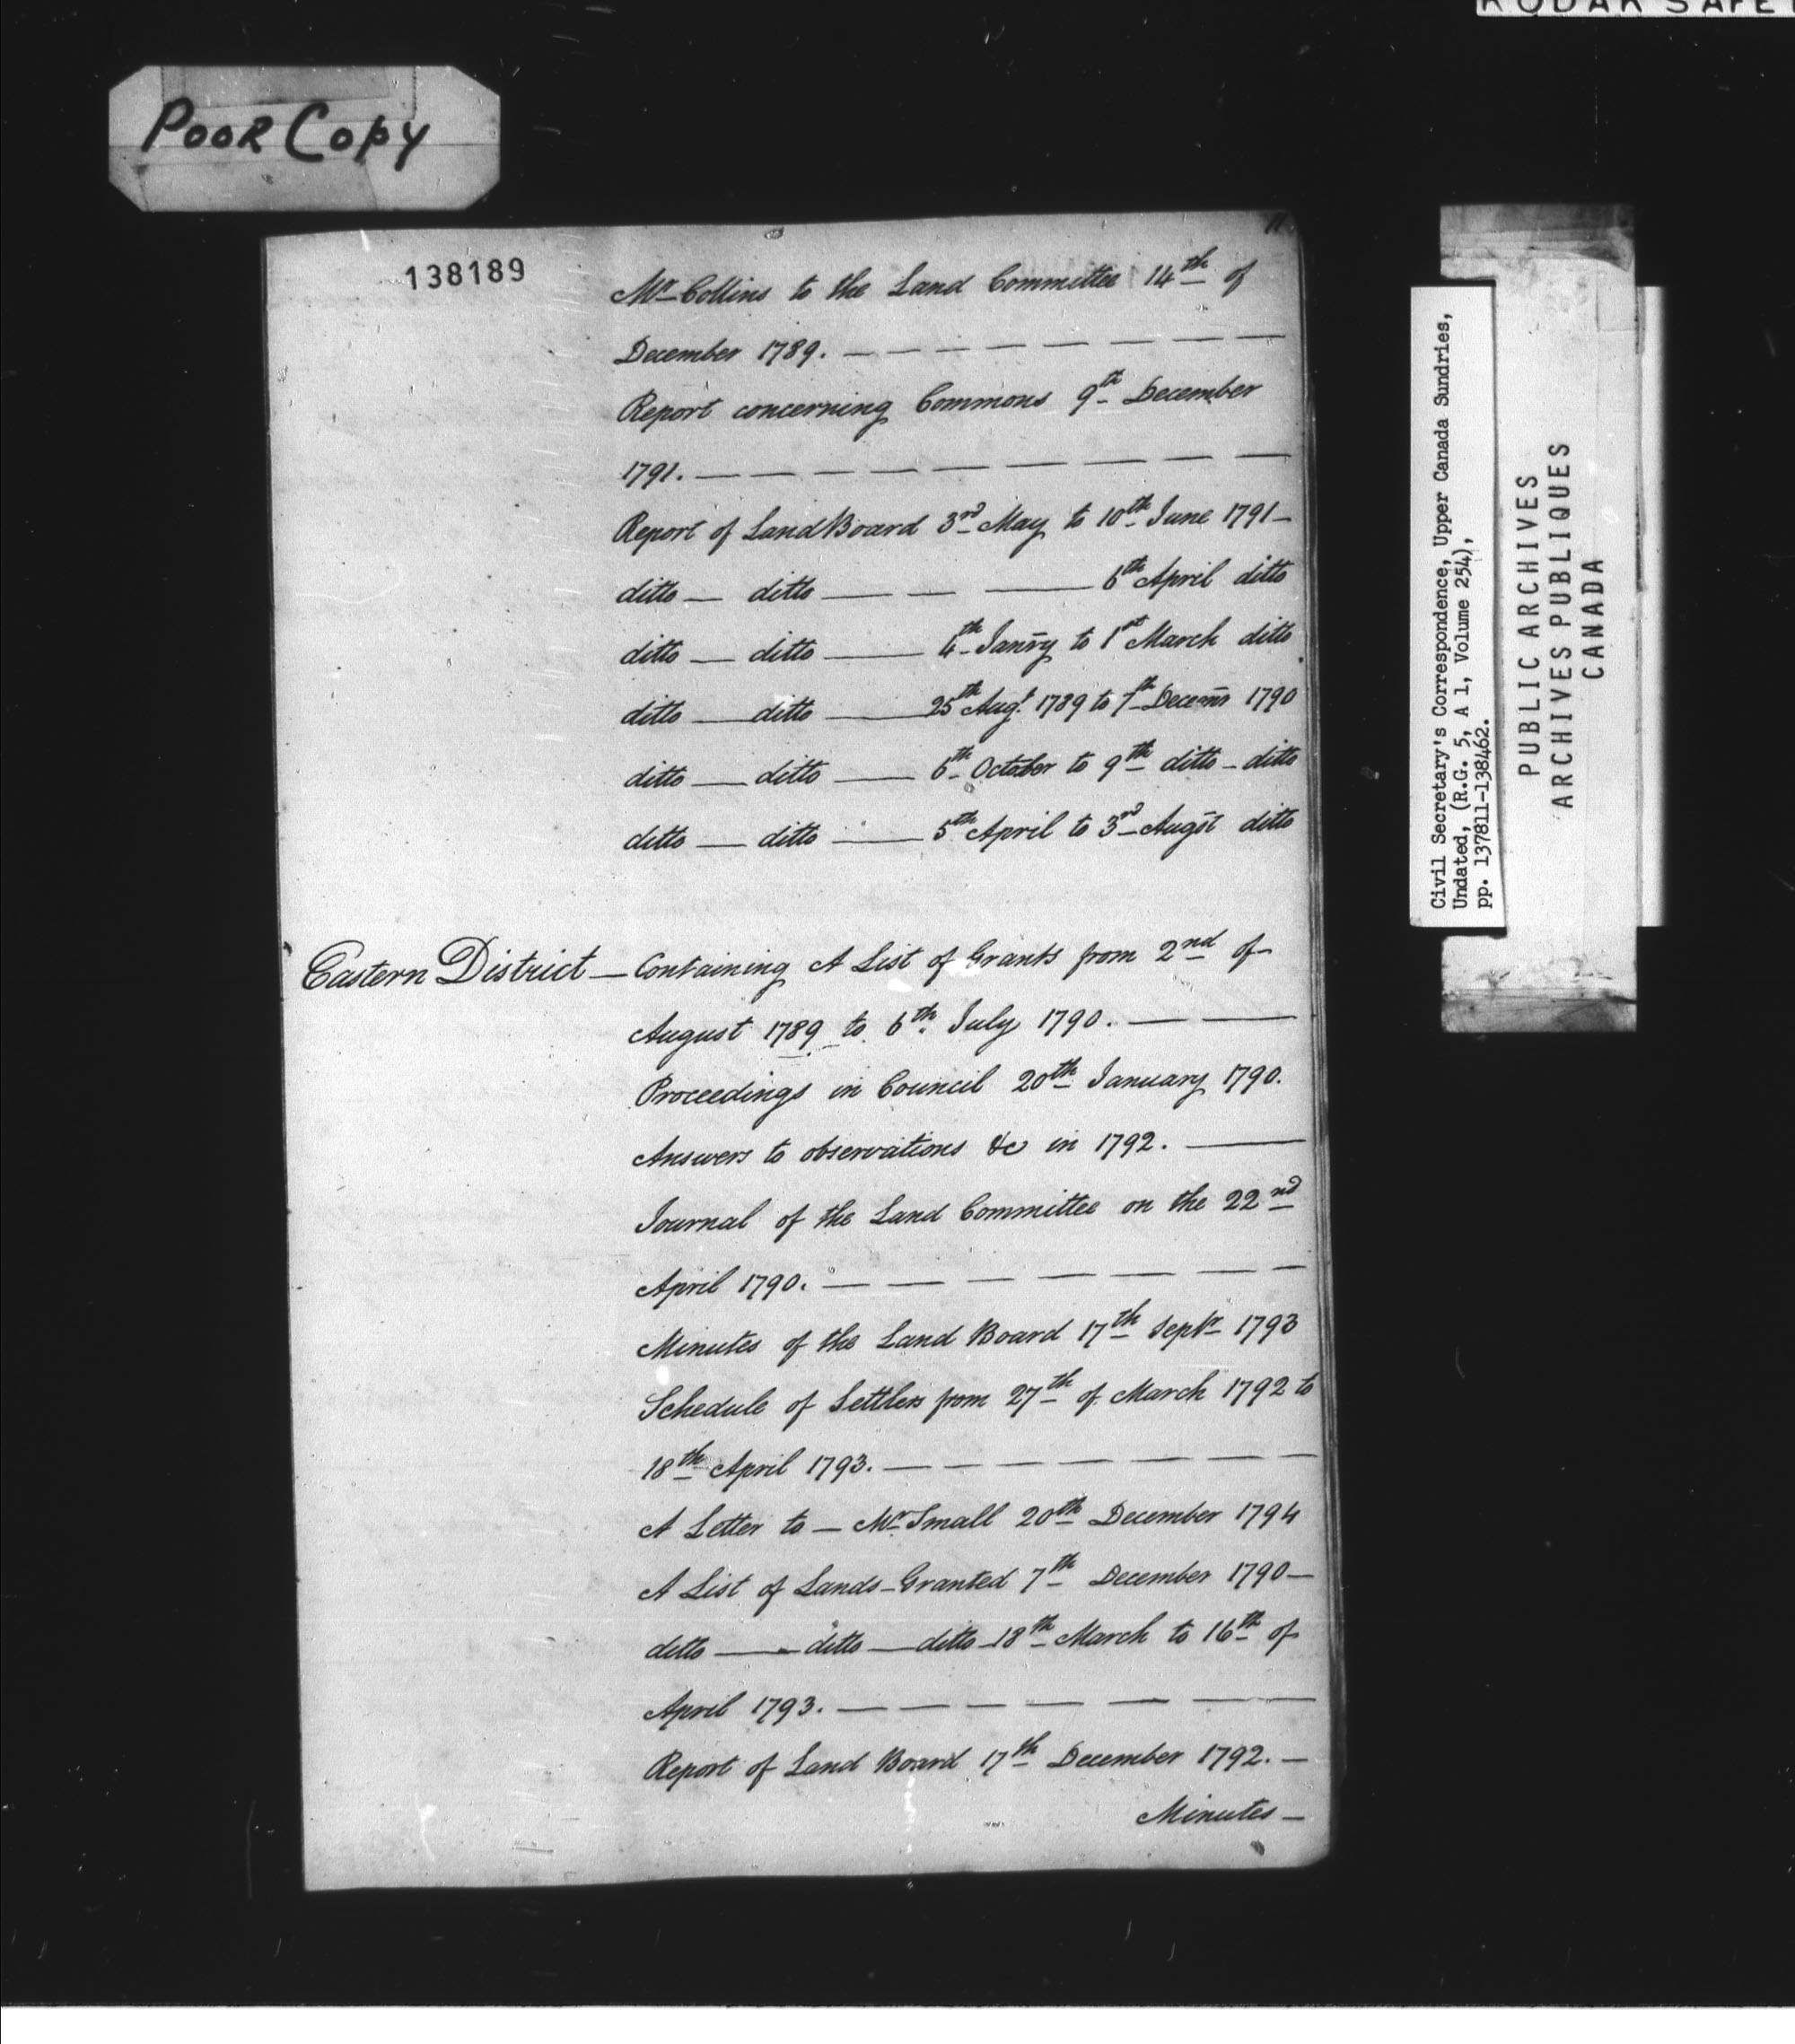 KODAK SAFE
POOR COPY
138189
11.
Mr Collins to the Land Committee 14th of
December 1789. — — — — — — — —
Report concerning Commons 9th December
1791. — — — — — — — —
Report of Land Board 3rd May to 10th June 1791 —
ditto — ditto — — — 6th April ditto
ditto — ditto — 4th Janry to 1st March ditto
ditto — ditto — 25th Augt. 1789 to 7th Decemr 1790
ditto — ditto — 6th October to 9th ditto — ditto
ditto — ditto — 5th April to 3rd Augst ditto
Eastern District — Containing A List of Grants from 2nd of
August 1789 to 6th July 1790. — —
Proceedings in Council 20th January 1790.
Answers to observations &c in 1792. —
Journal of the Land Committee on the 22nd
April 1790. — — — — — — —
Minutes of the Land Board 17th Septr 1793
Schedule of Settlers from 27th of March 1792 to
18th April 1793. — — — — — — —
A Letter to — Mr Small 20th December 1794
A List of Lands Granted 7th December 1790 —
ditto — ditto — ditto 18th March to 16th of
April 1793. — — — — — —
Report of Land Board 17th December 1792. —
Minutes —
Civil Secretary's Correspondence, Upper Canada Sundries,
Undated, (R.G. 5, A 1, Volume 254),
pp. 137811-138462.
PUBLIC ARCHIVES
ARCHIVES PUBLIQUES
CANADA